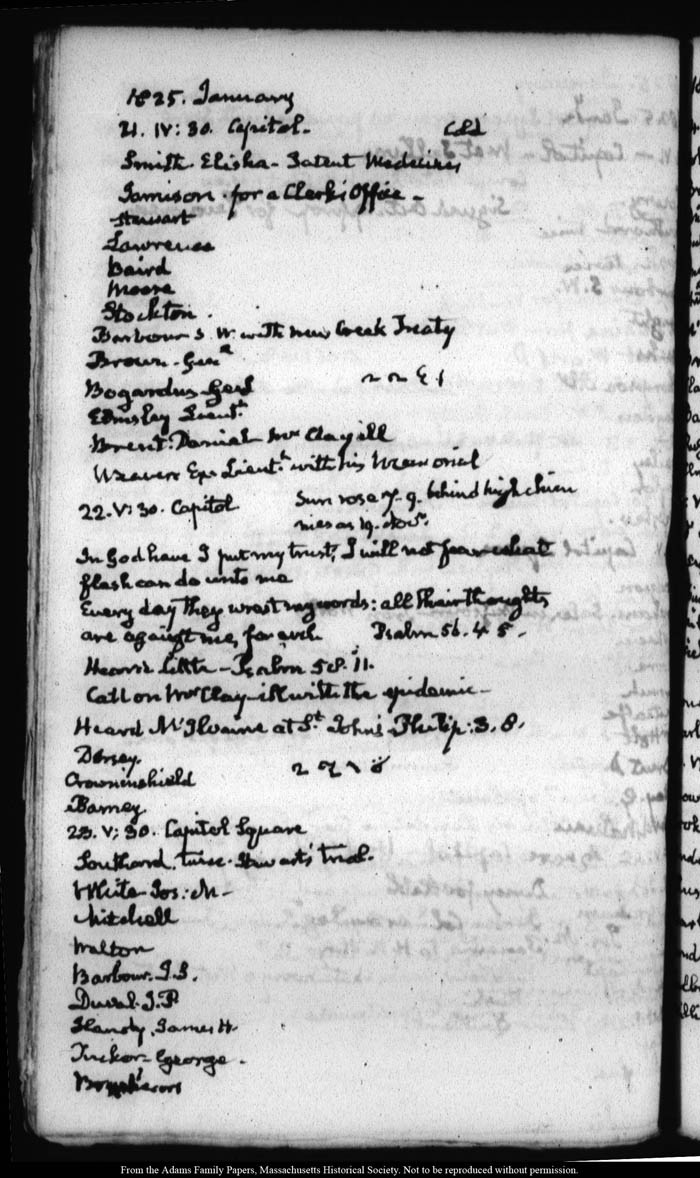 1825. January
21. IV:30. Capitol. Cold
Smith Elisha - Patent Medicines
Jamison. for a Clerk's Office -
Stewart
Lawrence
Baird
Moore
Stockton.
Barbour S. W. with new Creek Treaty
Brown. Genl
Bogardus Genl
Edmsley Lieut
Brent. Daniel Mr Clay ill
Weaver Ex-Lieut with his Memorial
22. V:30. Capitol Sun rose 7. 9. behind high chim
nies as 19. Novr.
In God have I put my trust; I will not fear what
flesh can do unto me
Every day they wrest my words: all their thoughts
are against me, for evil. Psalm 56. 4 5.
Heard Little - Psalm 58. 11.
Call on Mr Clay - ill with the epidemic -
Heard McIlvaine at St. John's Philip: 3. 8.
Dorsey.
Crowninshield
Barney
23. V:30. Capitol Square
Southard. twice. Stewart's trial.
White Jos: M -
Mitchell
Walton
Barbour. J. S.
Duval. I. P.
Handy. James H.
Tucker - George.
From the Adams Family Papers, Massachusetts Historical Society. Not to be reproduced without permission.